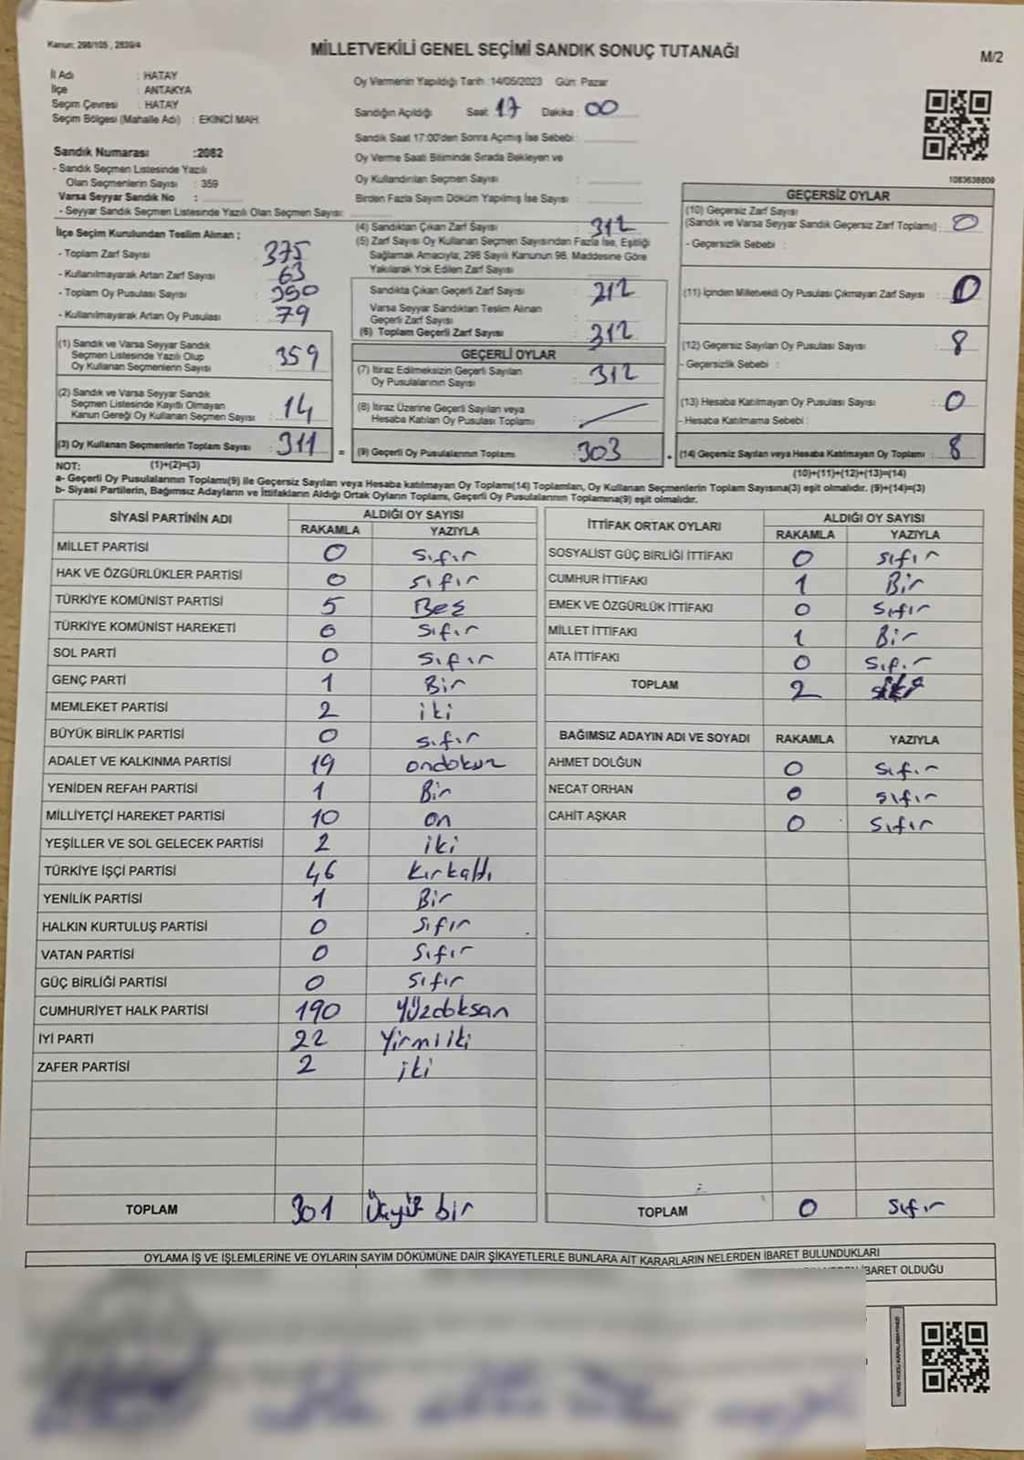 Kanun: 298/105 , 2839/4
MİLLETVEKİLİ GENEL SEÇİMİ SANDIK SONUÇ TUTANAĞI
M/2
İl Adı : HATAY
İlçe : ANTAKYA
Seçim Çevresi : HATAY
Seçim Bölgesi (Mahalle Adı) : EKİNCİ MAH.
Oy Vermenin Yapıldığı Tarih :14/05/2023 Gün: Pazar
Sandığın Açıldığı Saat: 17 Dakika : 00
Sandık Saat 17:00'den Sonra Açımış İse Sebebi :
Oy Verme Saati Bitiminde Sırada Bekleyen ve
Oy Kullandırılan Seçmen Sayısı :
Birden Fazla Sayım Döküm Yapılmış İse Sayısı :
Sandık Numarası :2082
- Sandık Seçmen Listesinde Yazılı
Olan Seçmenlerin Sayısı : 359
Varsa Seyyar Sandık No :
- Seyyar Sandık Seçmen Listesinde Yazılı Olan Seçmen Sayısı:
1083638809
İlçe Seçim Kurulundan Teslim Alınan ;
- Toplam Zarf Sayısı : 375
- Kullanılmayarak Artan Zarf Sayısı : 63
- Toplam Oy Pusulası Sayısı : 390
- Kullanılmayarak Artan Oy Pusulası : 79
(1) Sandık ve Varsa Seyyar Sandık
Seçmen Listesinde Yazılı Olup
Oy Kullanan Seçmenlerin Sayısı : 359
(2) Sandık ve Varsa Seyyar Sandık
Seçmen Listesinde Kayıtlı Olmayan
Kanun Gereği Oy Kullanan Seçmen Sayısı : 14
(3) Oy Kullanan Seçmenlerin Toplam Sayısı : 311 =
(4) Sandıktan Çıkan Zarf Sayısı : 312
(5) Zarf Sayısı Oy Kullanan Seçmen Sayısından Fazla İse, Eşitliği
Sağlamak Amacıyla, 298 Sayılı Kanunun 98. Maddesine Göre
Yakılarak Yok Edilen Zarf Sayısı :
Sandıkta Çıkan Geçerli Zarf Sayısı : 212
Varsa Seyyar Sandıktan Teslim Alınan
Geçerli Zarf Sayısı :
(6) Toplam Geçerli Zarf Sayısı : 312
GEÇERLİ OYLAR
(7) İtiraz Edilmeksizin Geçerli Sayılan
Oy Pusulalarının Sayısı : 312
(8) İtiraz Üzerine Geçerli Sayılan veya
Hesaba Katılan Oy Pusulası Toplamı :
(9) Geçerli Oy Pusulalarının Toplamı : 303
GEÇERSİZ OYLAR
(10) Geçersiz Zarf Sayısı
(Sandık ve Varsa Seyyar Sandık Geçersiz Zarf Toplamı) : 0
- Geçersizlik Sebebi :
(11) İçinden Milletvekili Oy Pusulası Çıkmayan Zarf Sayısı : 0
(12) Geçersiz Sayılan Oy Pusulası Sayısı : 8
- Geçersizlik Sebebi :
(13) Hesaba Katılmayan Oy Pusulası Sayısı : 0
- Hesaba Katılmama Sebebi :
(14) Geçersiz Sayılan veya Hesaba Katılmayan Oy Toplamı : 8
NOT: (1)+(2)=(3)
(10)+(11)+(12)+(13)=(14)
a- Geçerli Oy Pusulalarının Toplamı(9) ile Geçersiz Sayılan veya Hesaba katılmayan Oy Toplamı(14) Toplamları, Oy Kullanan Seçmenlerin Toplam Sayısına(3) eşit olmalıdır. (9)+(14)=(3)
b- Siyasi Partilerin, Bağımsız Adayların ve İttifakların Aldığı Ortak Oyların Toplamı, Geçerli Oy Pusulalarının Toplamına(9) eşit olmalıdır.
SİYASİ PARTİNİN ADI ALDIĞI OY SAYISI
RAKAMLA YAZIYLA
MİLLET PARTİSİ 0 Sıfır
HAK VE ÖZGÜRLÜKLER PARTİSİ 0 Sıfır
TÜRKİYE KOMÜNİST PARTİSİ 5 Beş
TÜRKİYE KOMÜNİST HAREKETİ 0 Sıfır
SOL PARTİ 0 Sıfır
GENÇ PARTİ 1 Bir
MEMLEKET PARTİSİ 2 iki
BÜYÜK BİRLİK PARTİSİ 0 Sıfır
ADALET VE KALKINMA PARTİSİ 19 ondokuz
YENİDEN REFAH PARTİSİ 1 Bir
MİLLİYETÇİ HAREKET PARTİSİ 10 on
YEŞİLLER VE SOL GELECEK PARTİSİ 2 iki
TÜRKİYE İŞÇİ PARTİSİ 46 Kırkaltı
YENİLİK PARTİSİ 1 Bir
HALKIN KURTULUŞ PARTİSİ 0 Sıfır
VATAN PARTİSİ 0 Sıfır
GÜÇ BİRLİĞİ PARTİSİ 0 Sıfır
CUMHURİYET HALK PARTİSİ 190 Yüzdoksan
İYİ PARTİ 22 Yirmiiki
ZAFER PARTİSİ 2 iki
TOPLAM 301 Üçyüz bir
İTTİFAK ORTAK OYLARI ALDIĞI OY SAYISI
RAKAMLA YAZIYLA
SOSYALİST GÜÇ BİRLİĞİ İTTİFAKI 0 Sıfır
CUMHUR İTTİFAKI 1 Bir
EMEK VE ÖZGÜRLÜK İTTİFAKI 0 Sıfır
MİLLET İTTİFAKI 1 Bir
ATA İTTİFAKI 0 Sıfır
TOPLAM 2
BAĞIMSIZ ADAYIN ADI VE SOYADI RAKAMLA YAZIYLA
AHMET DOLĞUN 0 Sıfır
NECAT ORHAN 0 Sıfır
CAHİT AŞKAR 0 Sıfır
TOPLAM 0 Sıfır
OYLAMA İŞ VE İŞLEMLERİNE VE OYLARIN SAYIM DÖKÜMÜNE DAİR ŞİKAYETLERLE BUNLARA AİT KARARLARIN NELERDEN İBARET BULUNDUKLARI
İBARET OLDUĞU